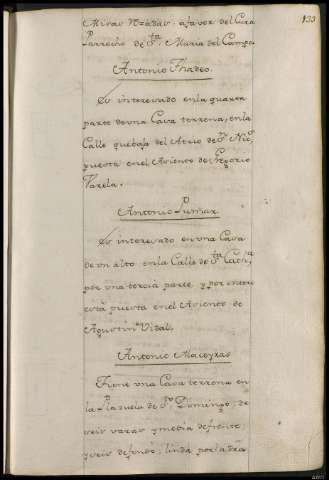 133
Misas Rezadas afavor del Cura
Parrocho de Sta. Maria del Campo
Antonio Thadeo.
Es interesado en la quarta
parte de una Casa terrena, en la
Calle que baja del Atrio de Sn. Nics.
puesta en el Asiento de Gregorio
Varela.
Antonio Pumar.
Es interesado en una Casa
de un alto en la Calle de Sta.
por una tercia parte, y por entero
está puesta en el Asiento de
Agustin Vidal.
Antonio Maceyras
Tiene una Casa terrena en
la Plazuela de Sto. Domingo, de
seis varas y media de frente,
y seis de fondo, linda por la dra.